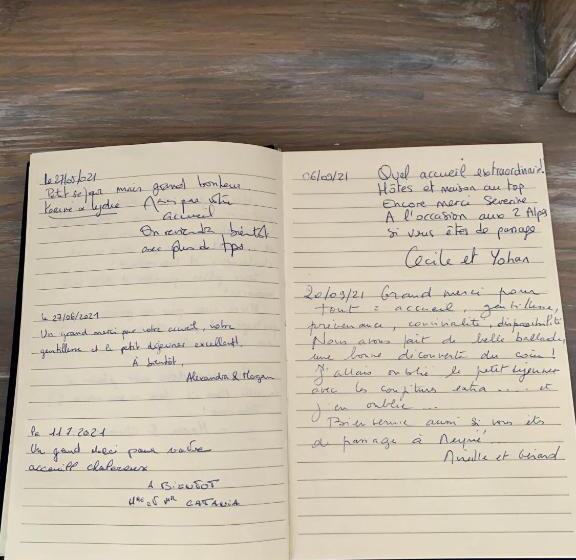 le 27/05/2021
Petit séjour mais grand bonheur
Karine & Lydie Merci pour votre
accueil
On reviendra bientôt
avec plus de tps.
le 27/06/2021
Un grand merci pour votre accueil, votre
gentillesse et le petit déjeuner excellent.
A bientôt,
Alexandra & Morgan
le 11.7.2021
Un grand merci pour votre
accueill chaleureux
A BIENTOT
Mme et Mr CATANIA
06/09/21 Quel accueil extraordinaire!
Hôtes et maison au top
Encore merci Séverine
A l'occasion aux 2 Alpes
si vous êtes de passage
Cécile et Yohan
20/09/21 Grand merci pour
tout : accueil, gentillesse,
prévenance, convivialité, disponibilité
Nous avons fait de belles ballades,
une bonne découverte du coin !
J'allais oublié le petit déjeuner
avec les confitures extra..... et
j'en oublie...
Bienvenue aussi si vous êtes
de passage à
Mireille et Gérard